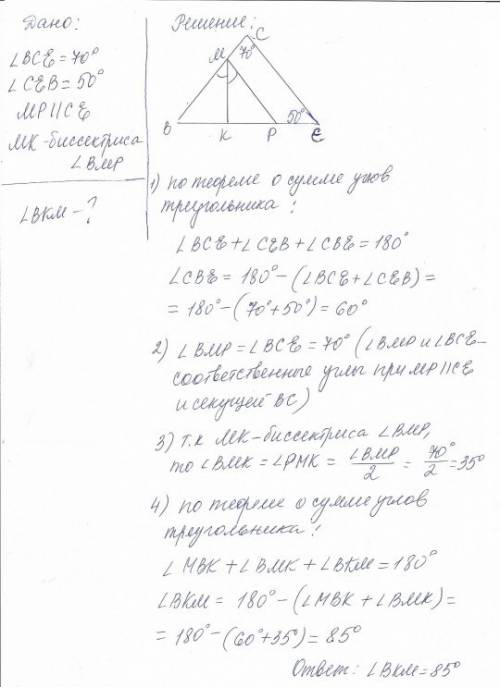 Дано:
∠BCE = 70°
∠CEB = 50°
MP || CE
MK - биссектриса
∠BMP
∠BKM - ?
Решение:
C
M
70°
50°
B
K
P
E
1) по теореме о сумме углов
треугольника:
∠BCE + ∠CEB + ∠CBE = 180°
∠CBE = 180° - (∠BCE + ∠CEB) =
= 180° - (70° + 50°) = 60°
2) ∠BMP = ∠BCE = 70° (∠BMP и ∠BCE -
соответственные углы при MP || CE
и секущей BC)
3) т.к MK - биссектриса ∠BMP,
то ∠BMK = ∠PMK = ∠BMP/2 = 70°/2 = 35°
4) по теореме о сумме углов
треугольника:
∠MBK + ∠BMK + ∠BKM = 180°
∠BKM = 180° - (∠MBK + ∠BMK) =
= 180° - (60° + 35°) = 85°
Ответ: ∠BKM = 85°